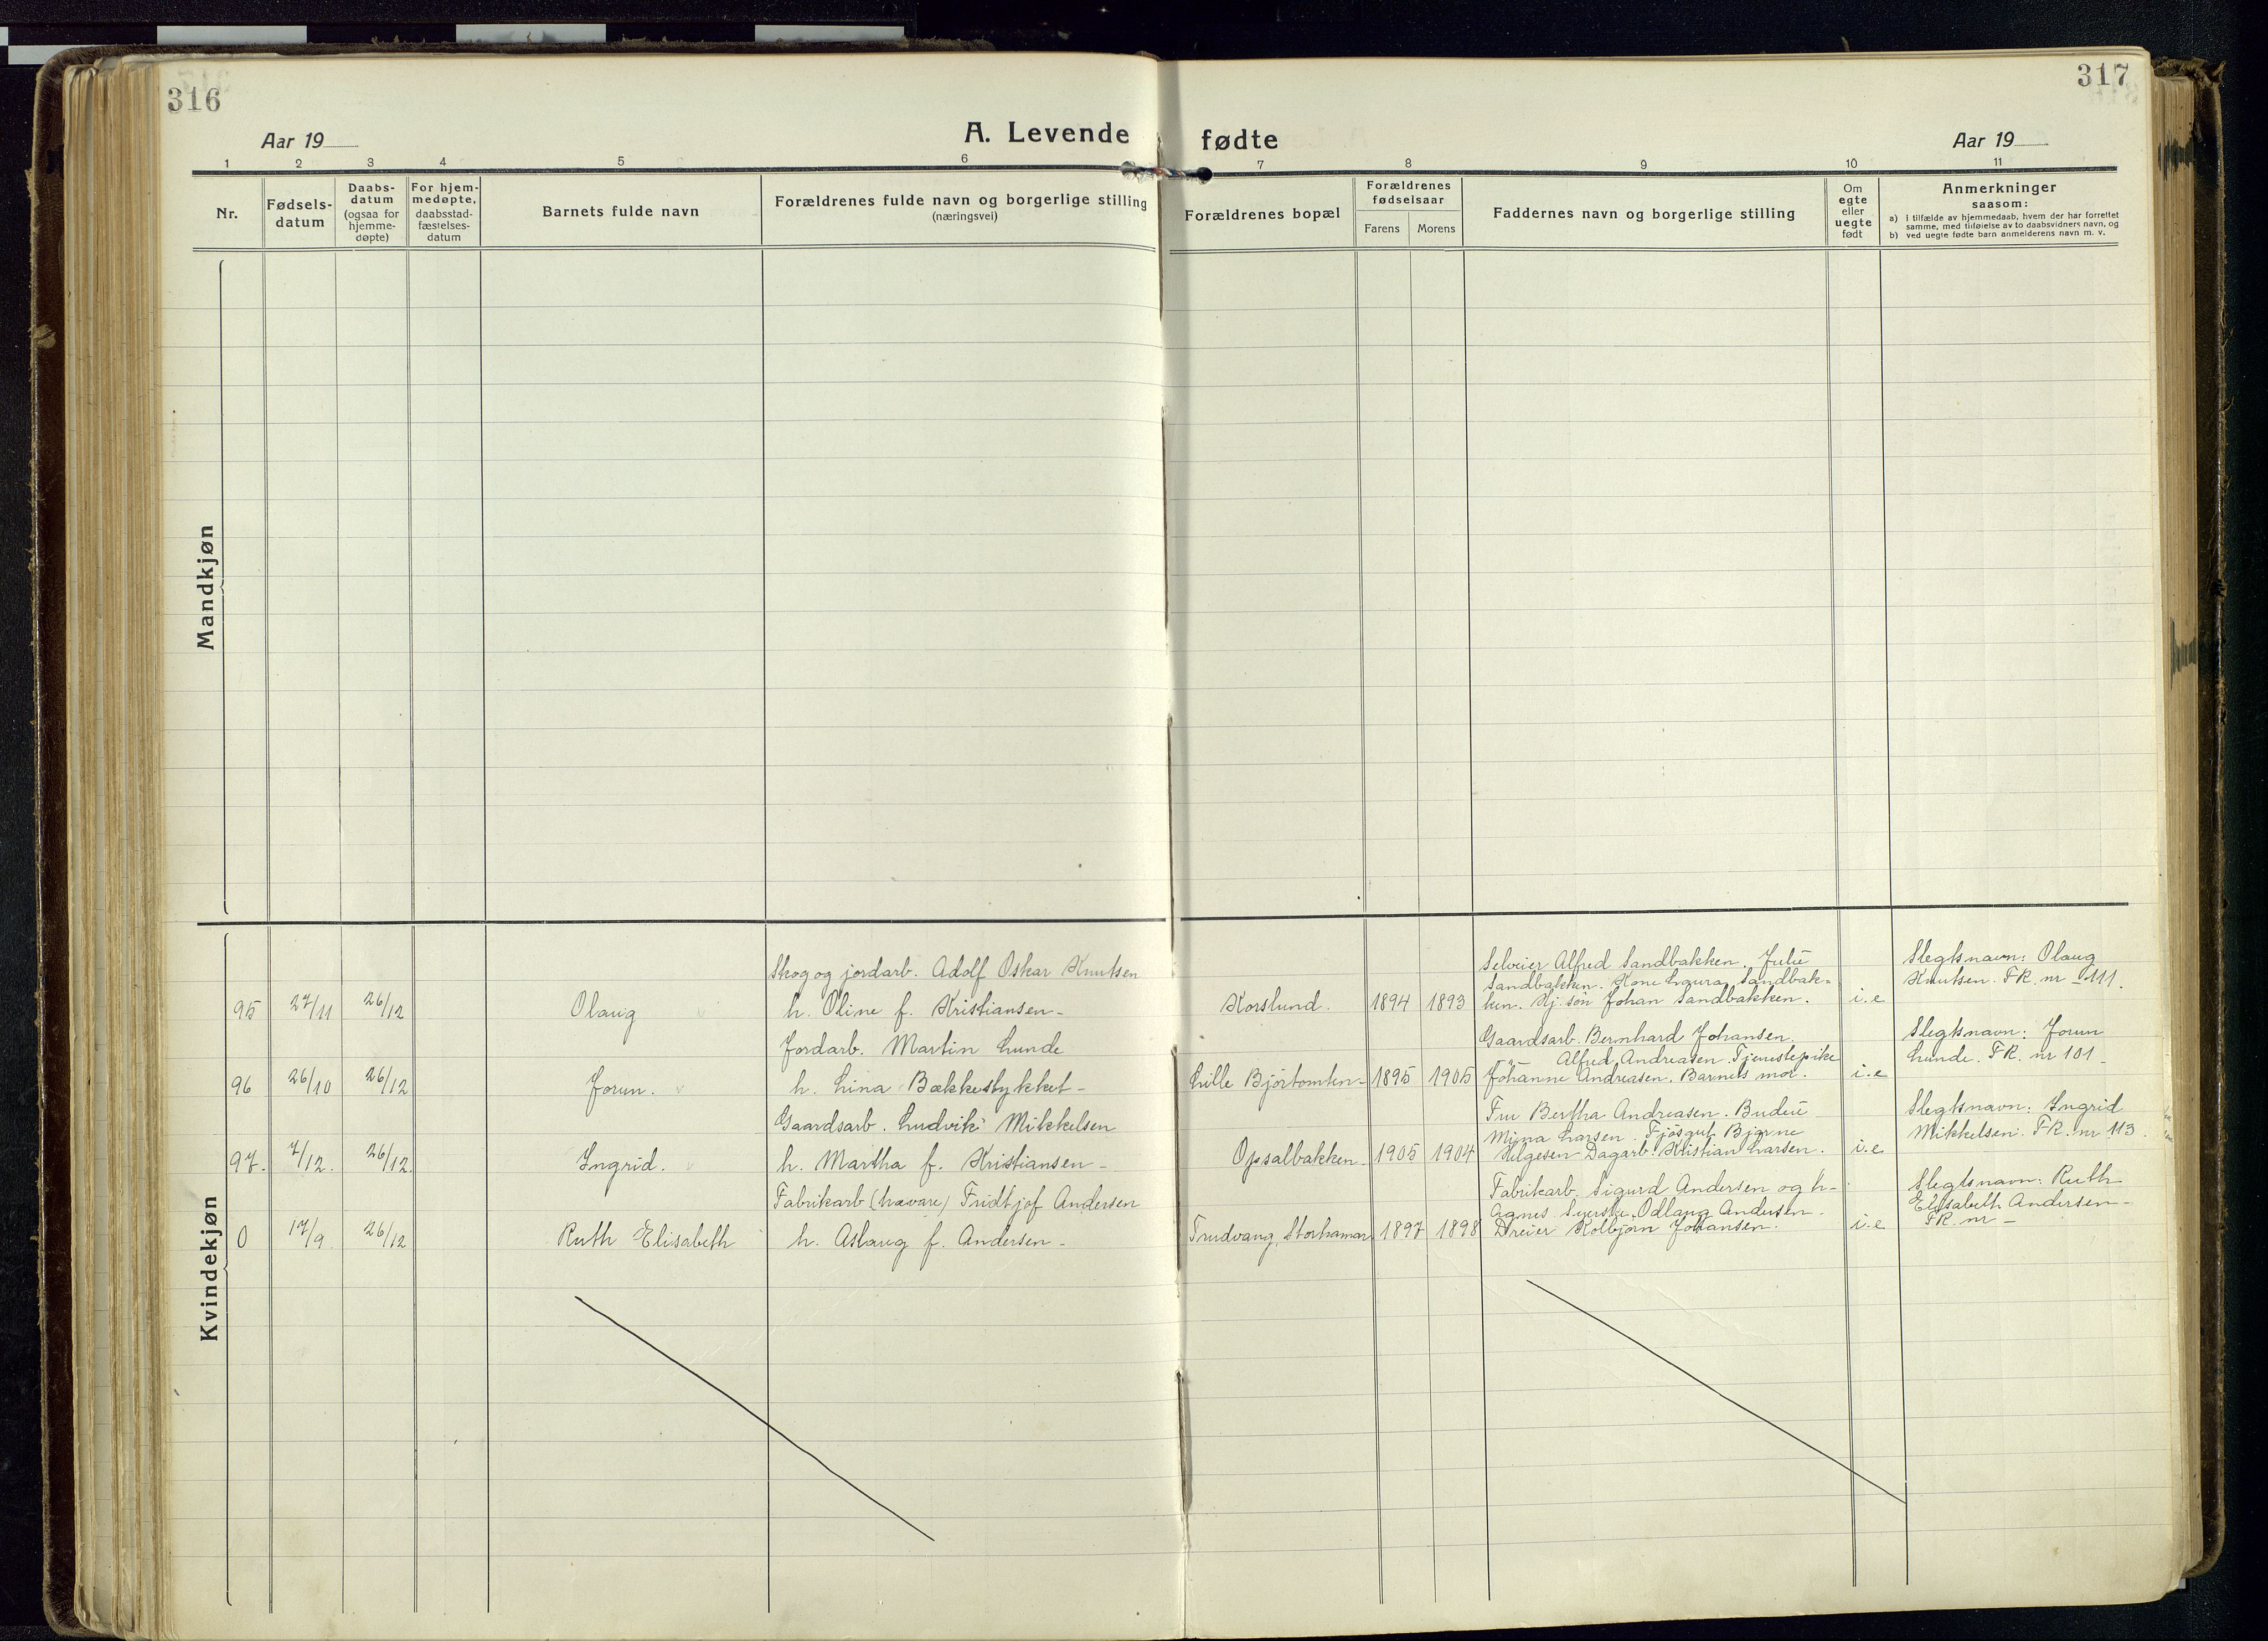 316
317
Aar 19
A. Levende fødte
Aar 19
1 2 3 4 5 6 7 8 9 10 11
Nr.
Fødsels-
datum
Daabs-
datum
(ogsaa for
hjemme-
døpte)
For hjem-
medøpte,
daabsstad-
fæstelses-
datum
Barnets fulde navn
Forældrenes fulde navn og borgerlige stilling
(næringsvei)
Forældrenes bopæl
Forældrenes
fødselsaar
Farens Morens
Faddernes navn og borgerlige stilling
Om
egte
eller
uegte
født
Anmerkninger
saasom:
a) i tilfælde av hjemmedaab, hvem der har forrettet
samme, med tilføielse av to daabsvidners navn, og
b) ved uegte fødte barn anmelderens navn m. v.
Mandkjøn
Kvindekjøn
95 27/11 26/12 Olaug
Skog og jordarb. Adolf Oskar Knutsen
h. Oline f. Kristiansen-
Korslund. 1894 1893
Selveier Alfred Sandbakken. Julie
Sandbakken. Kone Laura Sandbak-
ken. Hj. søn Johan Sandbakken.
i.e
Slegtsnavn: Olaug
Knutsen. FR. nr 111.
96 26/10 26/12 Jorun.
Jordarb. Martin Lunde
h. Lina Bækkestykket-
Lille Bjørtomten- 1895 1905
Gaardsarb. Bernhard Johansen.
Alfred Andreasen. Tjenestepike
Johanne Andreasen. Barnets mor.
i.e
Slegtsnavn: Jorun
Lunde. FR. nr 101-
97. 7/12. 26/12. Ingrid.
Gaardsarb. Ludvik Mikkelsen
h. Martha f. Kristiansen-
Opsalbakken- 1905 1904
Fru Bertha Andreasen. Budeie
Mina Larsen. Fjøsgut Bjarne
Helgesen Dagarb. Kristian Larsen.
i.e
Slegtsnavn: Ingrid
Mikkelsen. FR. nr 113
0 17/9 26/12 Ruth Elisabeth
Fabrikarb (hævare) Fridtjof Andersen
h. Aslaug f. Andersen-
Trudvang, Storhamar 1897 1898
Fabrikarb. Sigurd Andersen og h-
Agnes. Syerske Odlaug Andersen-
Dreier Kolbjørn Johansen.
i.e
Slegtsnavn: Ruth
Elisabeth Andersen-
FR. nr -